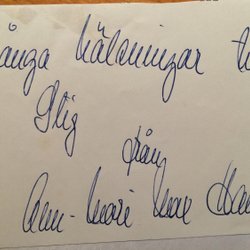 ånga hälsningar t
Stig
från
Ann-Marie